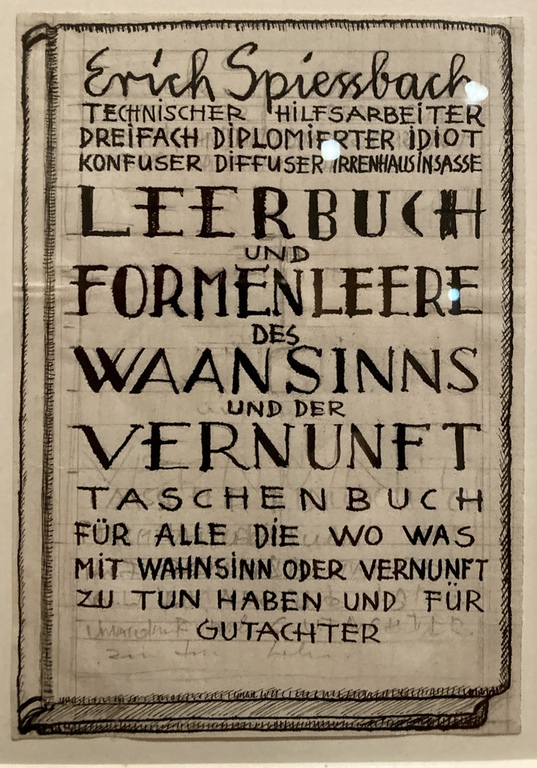 Erich Spiessbach
TECHNISCHER HILFSARBEITER
DREIFACH DIPLOMIERTER IDIOT
KONFUSER DIFFUSER IRRENHAUSINSASSE
LEERBUCH
UND
FORMENLEERE
DES
WAANSINNS
UND DER
VERNUNFT
TASCHENBUCH
FÜR ALLE DIE WO WAS
MIT WAHNSINN ODER VERNUNFT
ZU TUN HABEN UND FÜR
GUTACHTER